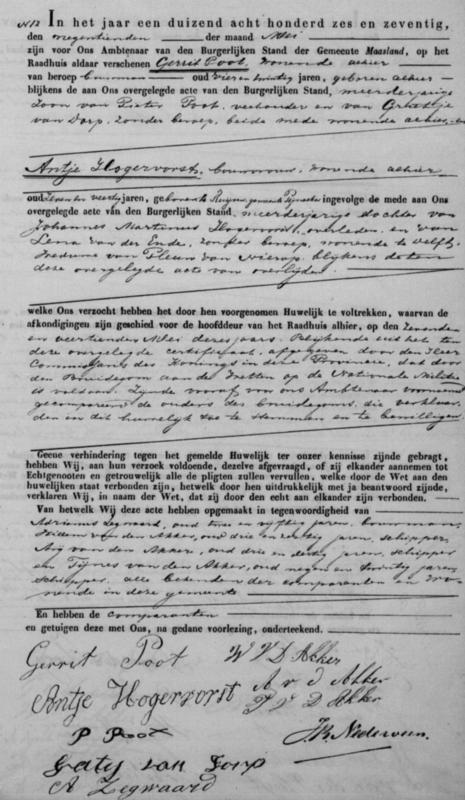 N12 In het jaar een duizend acht honderd zes en zeventig,
den negentienden der maand Mei
zijn voor Ons Ambtenaar van den Burgerlijken Stand der Gemeente Maasland, op het
Raadhuis aldaar verschenen Gerrit Poot, wonende alhier
van beroep bouwman oud vier en twintig jaren, geboren alhier
blijkens de aan Ons overgelegde acte van den Burgerlijken Stand, meerderjarige
zoon van Pieter Poot, veehouder en van
van Dorp, zonder beroep, beide mede wonende alhier, en
Antje Hogervorst, bouwvrouw, wonende alhier
oud jaren, geboren te gemeente Pijnacker ingevolge de mede aan Ons
overgelegde acte van den Burgerlijken Stand, meerderjarige dochter van
Johannes Martinus Hogervorst, overleden, en van
Lena van der Ende, zonder beroep, wonende te Delft,
weduwe van van blijkens de ten
deze overgelegde acte van overlijden.
welke Ons verzocht hebben het door hen voorgenomen Huwelijk te voltrekken, waarvan de
afkondigingen zijn geschied voor de hoofddeur van het Raadhuis alhier, op den zevenden
en veertienden Mei dezes jaars. Blijkende uit het ten
deze overgelegde certificaat, afgegeven door den Heer
Commissaris des Konings in deze Provincie, dat door
den Bruidegom aan de Wetten op de Nationale Militie
is voldaan. Zijnde vooraf voor ons Ambtenaar voornoemd
gecompareerd de ouders des Bruidegoms, die verklaar-
den in dit huwelijk toe te stemmen en te bewilligen
Geene verhindering tegen het gemelde Huwelijk ter onzer kennisse zijnde gebragt,
hebben Wij, aan hun verzoek voldoende, dezelve afgevraagd, of zij elkander aannemen tot
Echtgenooten en getrouwelijk alle de pligten zullen vervullen, welke door de Wet aan den
huwelijken staat verbonden zijn, hetwelk door hen uitdrukkelijk met ja beantwoord zijnde,
verklaren Wij, in naam der Wet, dat zij door den echt aan elkander zijn verbonden.
Van hetwelk Wij deze acte hebben opgemaakt in tegenwoordigheid van
Adrianus Zegwaard, oud twee en vijftig jaren, bouwman,
Willem van den Akker, oud drie en jaren, schipper,
Arij van den Akker, oud drie en dertig jaren, schipper
en van den Akker, oud negen en twintig jaren,
schipper, alle bekenden der comparanten en wo-
nende in deze gemeente
En hebben de comparanten
en getuigen deze met Ons, na gedane voorlezing, onderteekend.
Gerrit Poot W V D Akker
Antje Hogervorst A v d Akker
P Poot V D Akker
van Dorp Nederveen.
A Zegwaard